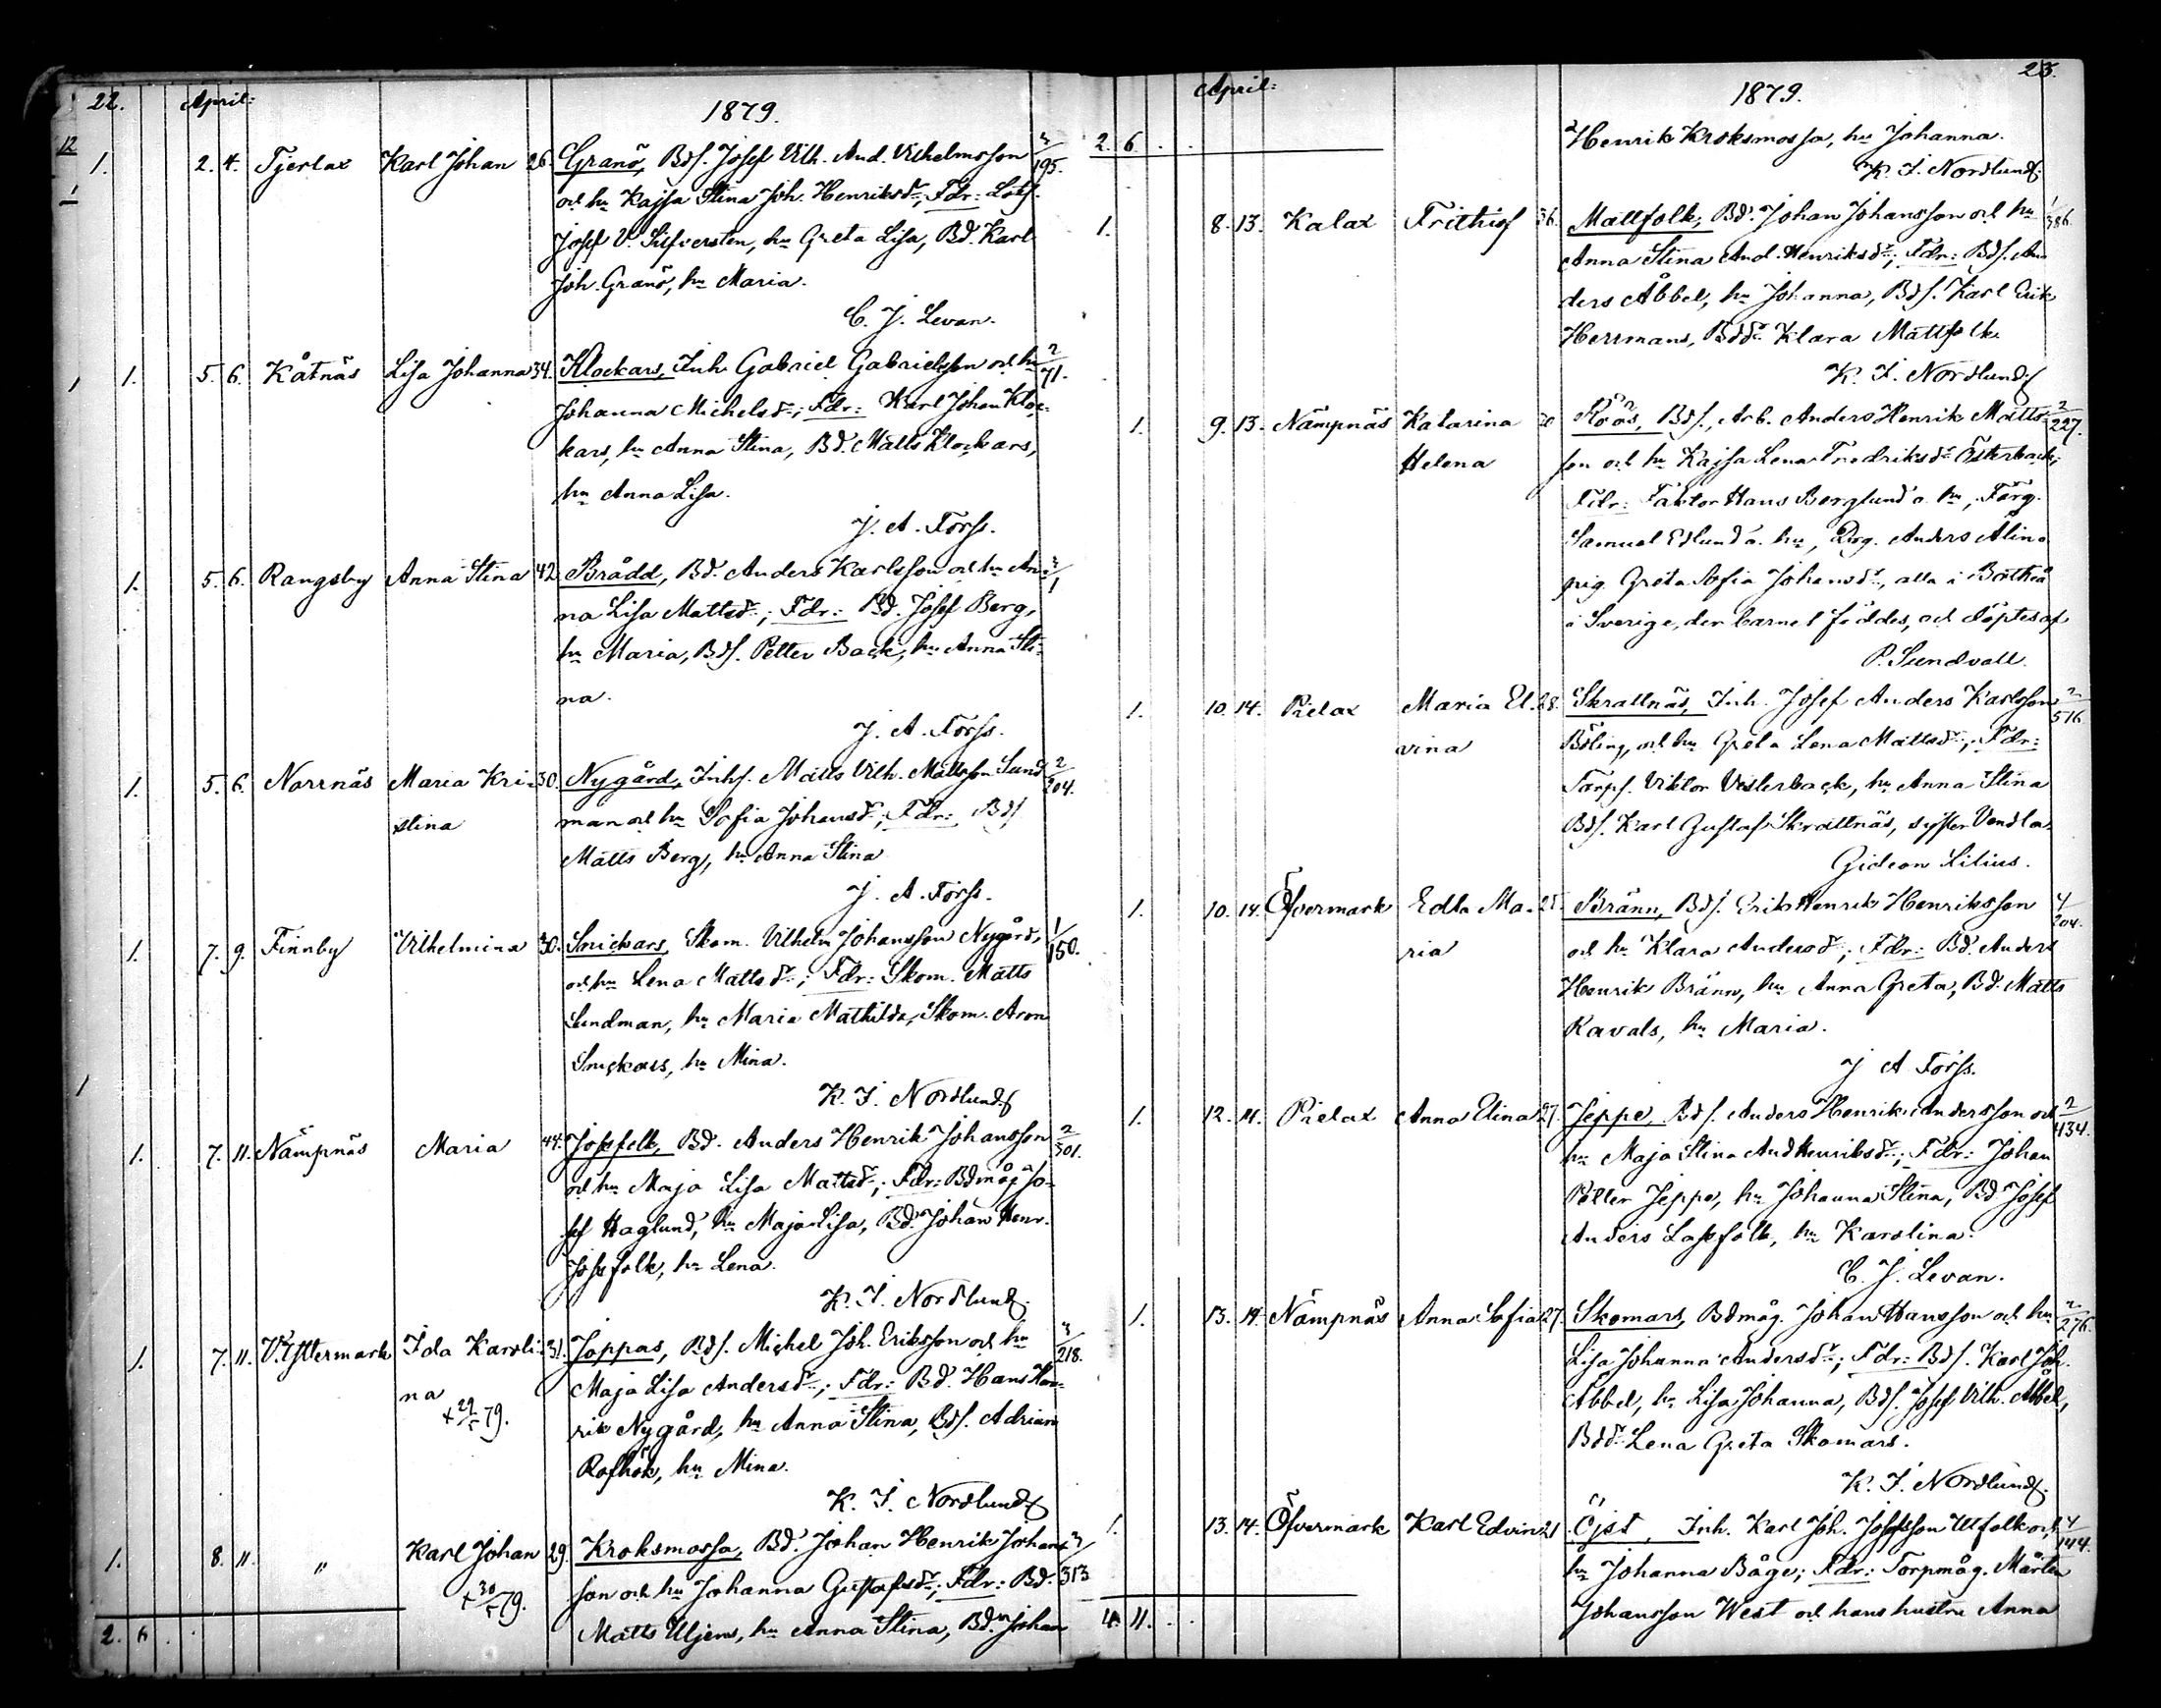 22. April: 1879.
12
1
1. 2. 4. Tjerlax Karl Johan 26. Granö, Bdf. Josef Vilh. And. Vilhelmsson 3/195.
och hu Kajsa Stina Joh. Henriksdr; Fdr: Lots.
Josef V. Silfversten, hu Greta Lisa, Bd. Karl
Joh. Granö, hu Maria.
C. J. Levan.
1 1. 5. 6. Kåtnäs Lisa Johanna 34. Klockars, Inh. Gabriel Gabrielsson och hu 2/71.
Johanna Michelsdr; Fdr: Karl Johan Kloc-
kars, hu Anna Stina, Bd. Matts Klockars,
hu Anna Lisa.
J. A. Forss.
1. 5. 6. Rangsby Anna Stina 42 Brådd, Bd. Anders Karlsson och hu An- 3/1
na Lisa Mattsdr; Fdr: Bd. Josef Berg,
hu Maria, Bdf. Petter Back, hu Anna Sti-
na.
J. A. Forss.
1. 5. 6. Norrnäs Maria Kri- 30. Nygård, Inhs. Matts Vilh. Mattsson Sund 2/204.
stina man och hu Sofia Johansdr; Fdr: Bdf
Matts Berg, hu Anna Stina
J. A. Forss.
1. 7. 9. Finnby Vilhelmina 30. Snickars, Skom. Vilhelm Johansson Nygård, 1/150.
och hu Lena Mattsdr; Fdr: Skom. Matts
Sundman, hu Maria Mathilda, Skom. Aron
Snickars, hu Mina.
K. I. Nordlund.
1
1. 7. 11. Nämpnäs Maria 44. Josefolk, Bd. Anders Henrik Johansson 2/301.
och hu Maja Lisa Mattsdr; Fdr: Bdmåg Jo-
sef Haglund, hu Maja Lisa, Bd. Johan Henr.
Josefolk, hu Lena.
K. I. Nordlund.
1. 7. 11. V.Yttermark Ida Karoli- 31. Joppas, Bdf. Michel Joh. Eriksson och hu 3/218.
na Maja Lisa Andersdr; Fdr: Bd. Hans Hen-
+ 29/5 79. rik Nygård, hu Anna Stina, Bdf. Adrian
Rofhök, hu Mina.
K. I. Nordlund
1. 8. 11. " Karl Johan 29. Kroksmossa, Bd. Johan Henrik Johans- 3/313
+ 30/5 79. son och hu Johanna Gustafsdr; Fdr: Bd.
2. 6 . . Matts Uljens, hu Anna Stina, Bdn Johan
April: 1879. 23.
2. 6. . . Henrik Kroksmossa, hu Johanna.
K. I. Nordlund.
1. 8. 13. Kalax Frithiof 36. Mattfolk, Bd. Johan Johansson och hu 1/386.
Anna Stina And. Henriksdr; Fdr: Bdf. An-
ders Åbbel, hu Johanna, Bdf. Karl Erik
Herrmans, Bddr Klara Mattfolk.
K. I. Nordlund
1. 9. 13. Nämpnäs Katarina 20 Röös, Bdf., Arb. Anders Henrik Matts- 2/227.
Helena son och hu Kajsa Lena Fredriksdr Österback;
Fdr: Faktor Hans Berglund o. hu, Färg.
Samuel Edlund o. hu, Drg. Anders Ålin o.
pig. Greta Sofia Johansdr, alla i Botheå
i Sverige, der barnet föddes, och döptes af
P. Sundvall.
1. 10. 14. Pielax Maria El- 28. Skrattnäs, Inh. Josef Anders Karlsson 2/516
vina Böling, och hu Greta Lena Mattsdr; Fdr:
Torpf. Viktor Vesterback, hu Anna Stina
Bdf. Karl Gustaf Skrattnäs, syster Vendla.
Gideon Lilius.
1. 10. 14. Öfvermark Edla Ma- 25. Bränn, Bdf. Erik Henrik Henriksson 4/204.
ria och hu Klara Andersdr; Fdr: Bd. Anders
Henrik Bränn, hu Anna Greta, Bd. Matts
Kavals, hu Maria.
J A Forss.
1. 12. 14. Pielax Anna Elina 27. Jeppe, Bdf. Anders Henrik Andersson och 2/434.
hu Maja Stina And Henriksdr; Fdr: Johan
Petter Jeppe, hu Johanna Stina, Bd Josef
Anders Lassfolk, hu Karolina.
C. J. Levan.
1. 13. 14. Nämpnäs Anna Sofia 27. Skomars, Bdmåg. Johan Hansson och hu 2/276.
Lisa Johanna Andersdr; Fdr: Bdf. Karl Joh.
Åbbel, hu Lisa Johanna, Bdf. Josef Vilh. Åbbel,
Bddr Lena Greta Skomars.
K. I. Nordlund.
1. 13. 14. Öfvermark Karl Edvin 21. Öjst, Inh. Karl Joh. Josefsson Ulfolk och 4/144.
hu Johanna Båge; Fdr: Torpmåg. Mårten
4. 11. . . Johansson West och hans hustru Anna